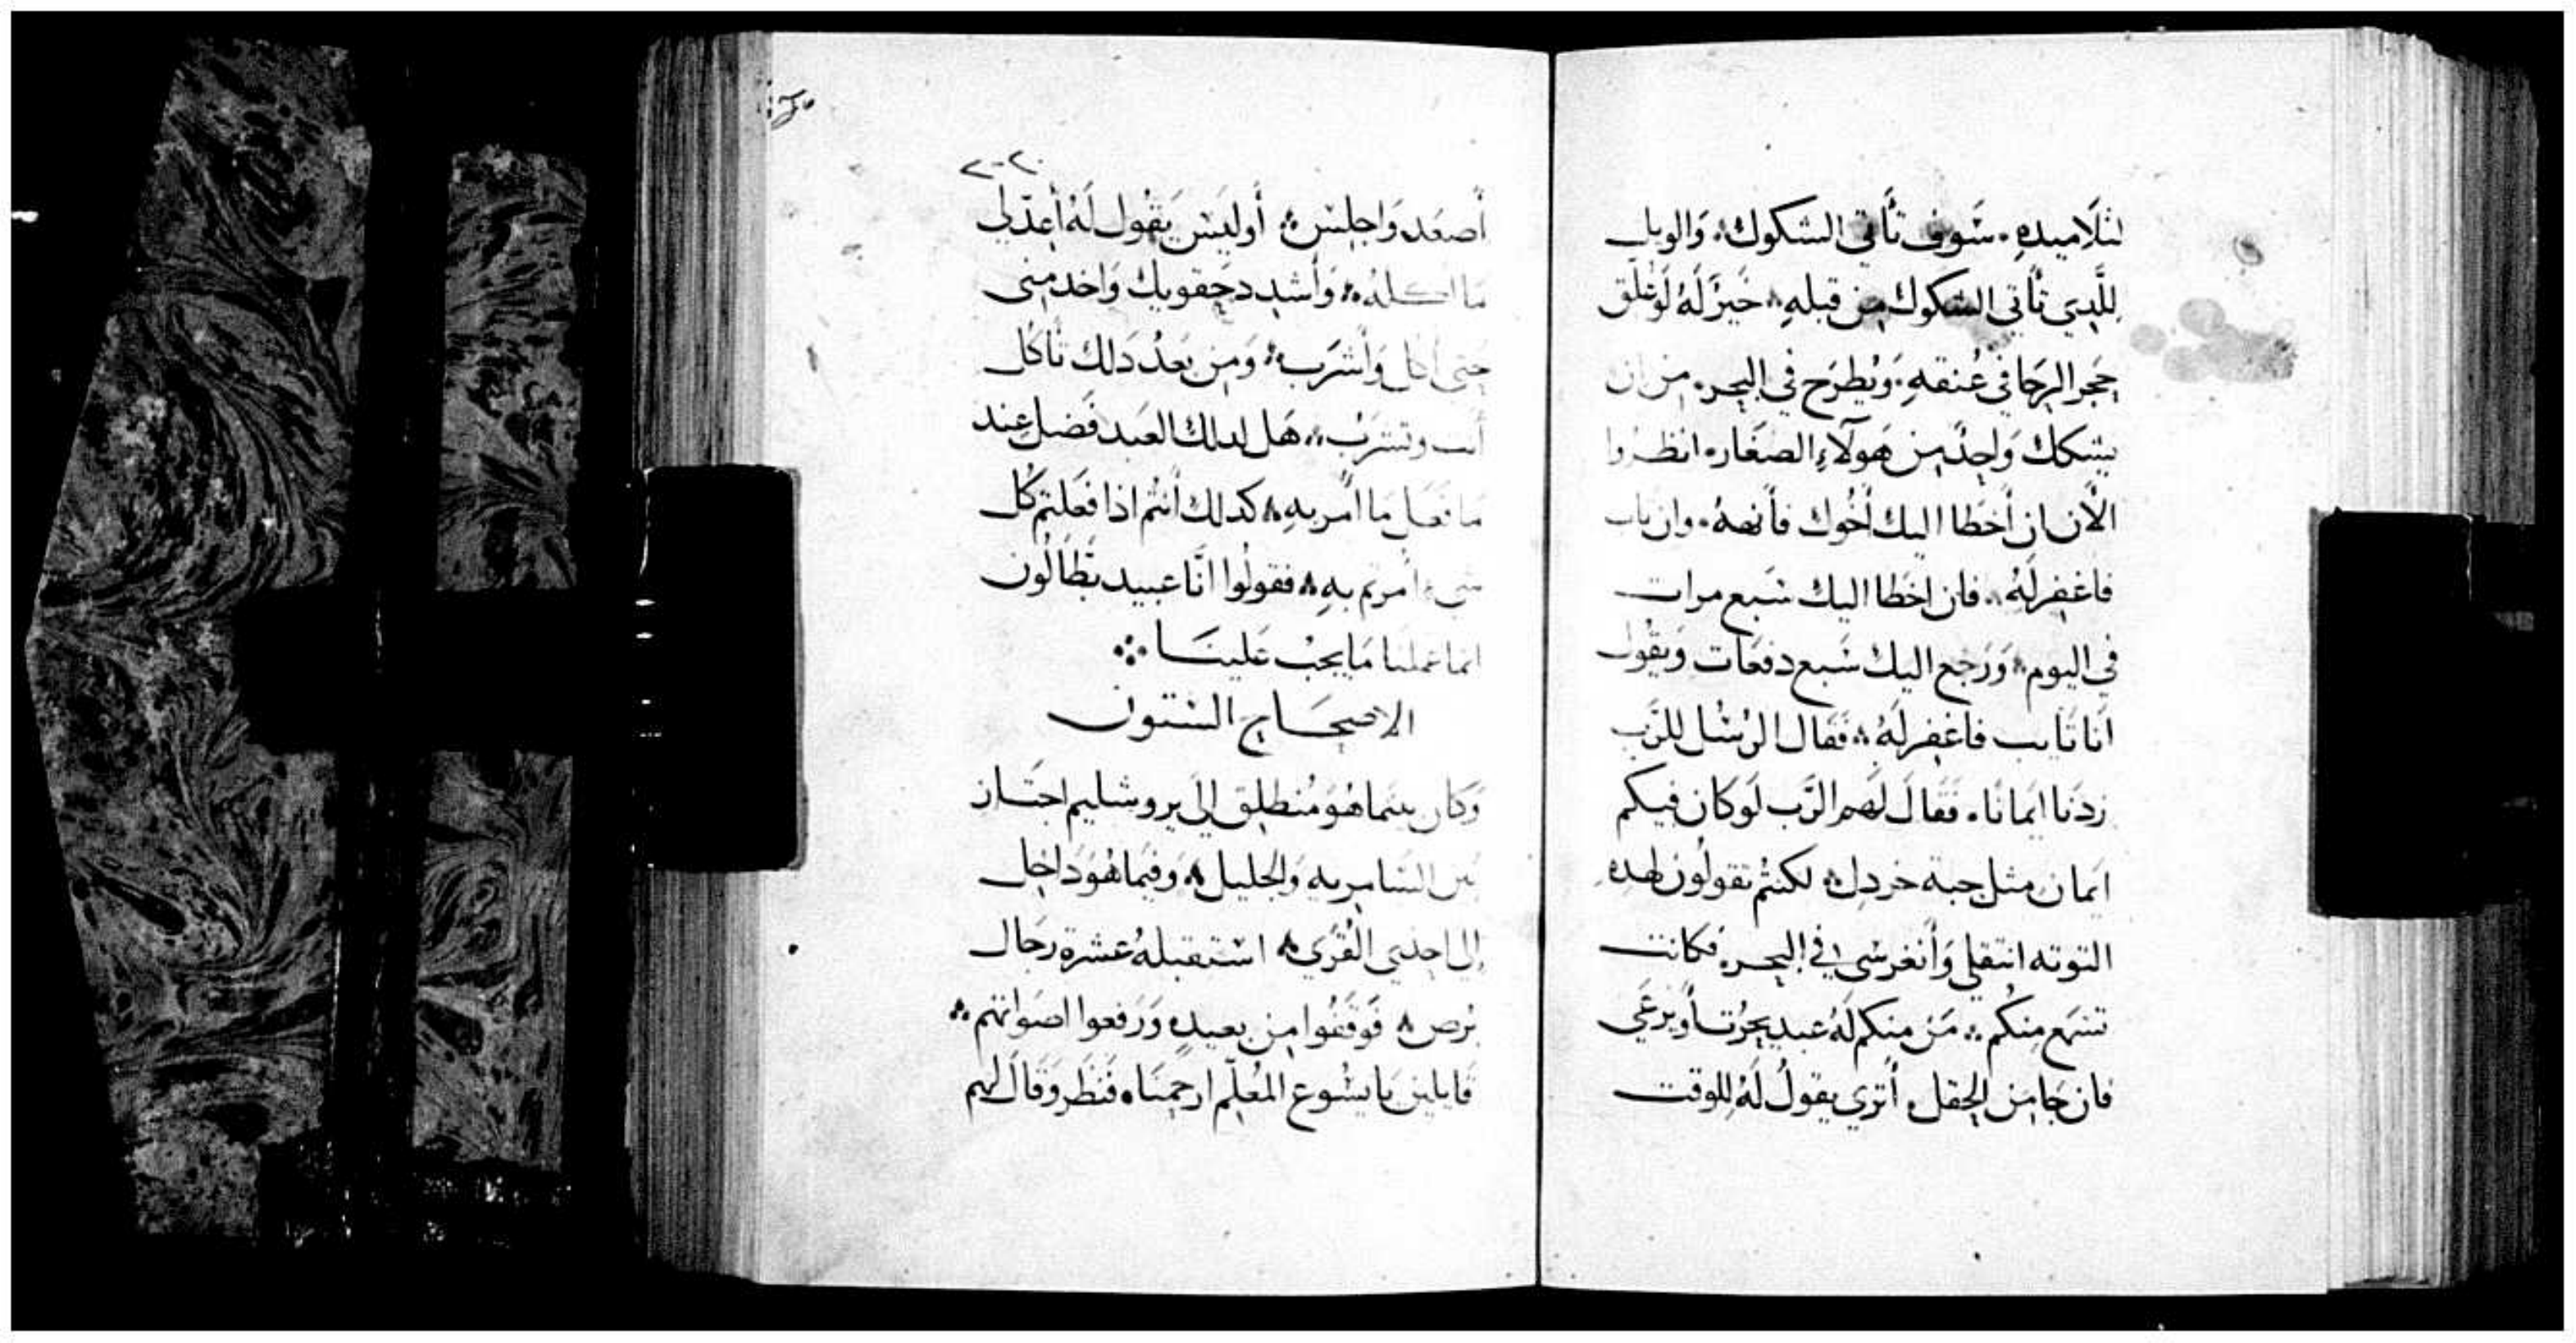 لتلاميده. سَوف تأتي الشكوك، وَالويل
للَّدِي تأتي الشكوك مِن قبلهِ، خَيرٌ لَهُ لَو عُلّق
حجر الرحَا في عُنقهِ، وَيُطرَح في البحر، من ان
يشكك وَاحدٌ مِن هَولآءِ الصغَار، انظروا
الأن ان أخطا اليك أخُوك فأنههُ. وان تاب
فاغفِر لَهُ، فان اخطا اليك سَبع مرات
في اليوم، وَرَجع اليك سَبع دفعَات وَيقُول
أنا تَايب فاغفِر لَهُ، فَقال الرُسُل للرَب
زدنا ايمانًا. فَقالَ لَهم الرَب لَو كان فيكم
ايمان مثل حبة خردل، لكنتُم تقولون لهده
التوته انتقلي وَأنغرسي في البحر، فكانت
تسَمع منكُم، مَن منكم لَهُ عبد يحرُت أو يَرعَي
فان جَا مِن الحقل، أترَي يقول لَهُ للوقت
أصعَد وَاجلِس، أو ليسَ يَقُول لَهُ أعدّ لي
مَا اكلهُ، وَأشدد حقويك وَاخدمني
حتى أكل وَأشرَب، وَمِن بَعدُ دَلك تأكل
أنت وتشرَبُ، هَل لدلك العَبد فَضل عِند
مَا فعَل مَا أمر بهِ، كدلك أنتُم اذا فَعَلتم كُل
شيء امرتم بهِ، فقولُوا انَّا عَبيد بَطَالُون
انما عَملنا مَا يجبُ عَلينَا
الاصحَاح السَتون
وَكان بينما هُوَ مُنطلِق إلَى يروشليم اجتَاز
بَين السَامريه وَالجليل، وَفيمَا هُوَ دَاخِل
إلى احدَي القُرَي، استقبلهُ عَشرة رجَال
بُرص، فَوَقَفُوا مِن بعيد، وَرَفعوا اصوَاتهم
قَايلين يَا يسُوع المعُلّم ارحمنَا، فَنَظر وَقَال لهم